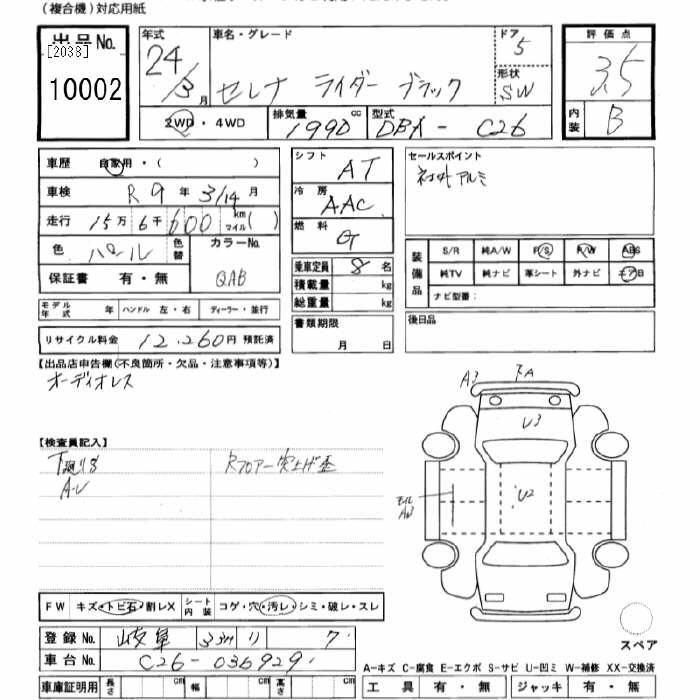 (複合機)対応用紙
出品No. [2038] 10002
年式 24/3月
車名・グレード セレナ ライダー ブラック
ドア 5
形状 SW
2WD・4WD
排気量 1990 cc
型式 DBA-C26
評価点 3.5
内装 B
車歴 自家用・( )
車検 R9年3/14月
走行 15万6千600 km マイル( )
色 パール 色替
カラーNo. QAB
保証書 有・無
モデル年式 年 ハンドル 左・右 ディーラー・並行
リサイクル料金 12,260円 預託済
シフト AT
冷房 AAC
燃料 G
乗車定員 8名
積載量 kg
総重量 kg
書類期限 月 日
セールスポイント
社外アルミ
装備品 S/R 純A/W P/S P/W ABS
純TV 純ナビ 革シート 外ナビ エアB
ナビ型番:
後日品
【出品店申告欄(不良箇所・欠品・注意事項等)】
オーディオレス
【検査員記入】
A・U
Rフロアー突上げ歪
A3
下A
U3
U2
モール
FW キズ・トビ石・割レX シート内装 コゲ・穴・汚レ・シミ・破レ・スレ
登録No. 岐阜 331 リ 7
車台No. C26-036929
車庫証明用 長さ cm 幅 cm 高さ cm
スペア
A-キズ C-腐食 E-エクボ S-サビ U-凹ミ W-補修 XX-交換済
工具 有・無 ジャッキ 有・無